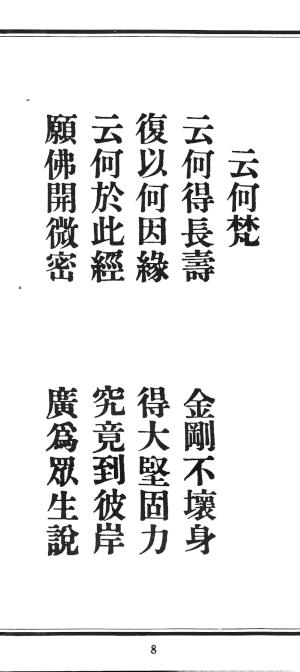 云何梵
云何得長壽　金剛不壞身
復以何因緣　得大堅固力
云何於此經　究竟到彼岸
願佛開微密　廣為眾生說
8